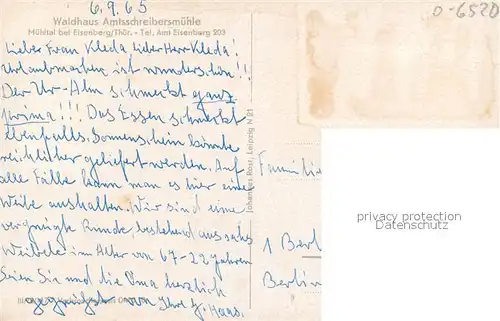 6.9.65
0-6520
Waldhaus Amtsschreibersmühle
Mühltal bei Eisenberg/Thür. • Tel. Amt Eisenberg 203
Lieber Frau Kleda lieber Herr Kleda.
Urlaubmachen ist wunderschön!!
Der Ur-Alm schmeckt ganz
prima!!! Das Essen schmeckt
ebenfalls. Sonnenschein könnte
reichlicher geliefert werden. Auf
alle Fälle kann man es hier eine
Weile aushalten. Wir sind eine
vergnügte Runde, bestehend aus sechs
Weibele im Alter von 67-22 Jahren
Seien Sie und die Oma herzlich
gegrüßt von Ihrer Haas.
Johannes Rose, Leipzig N 21
Familie
1 Berl
Berlin
privacy protection
Datenschutz